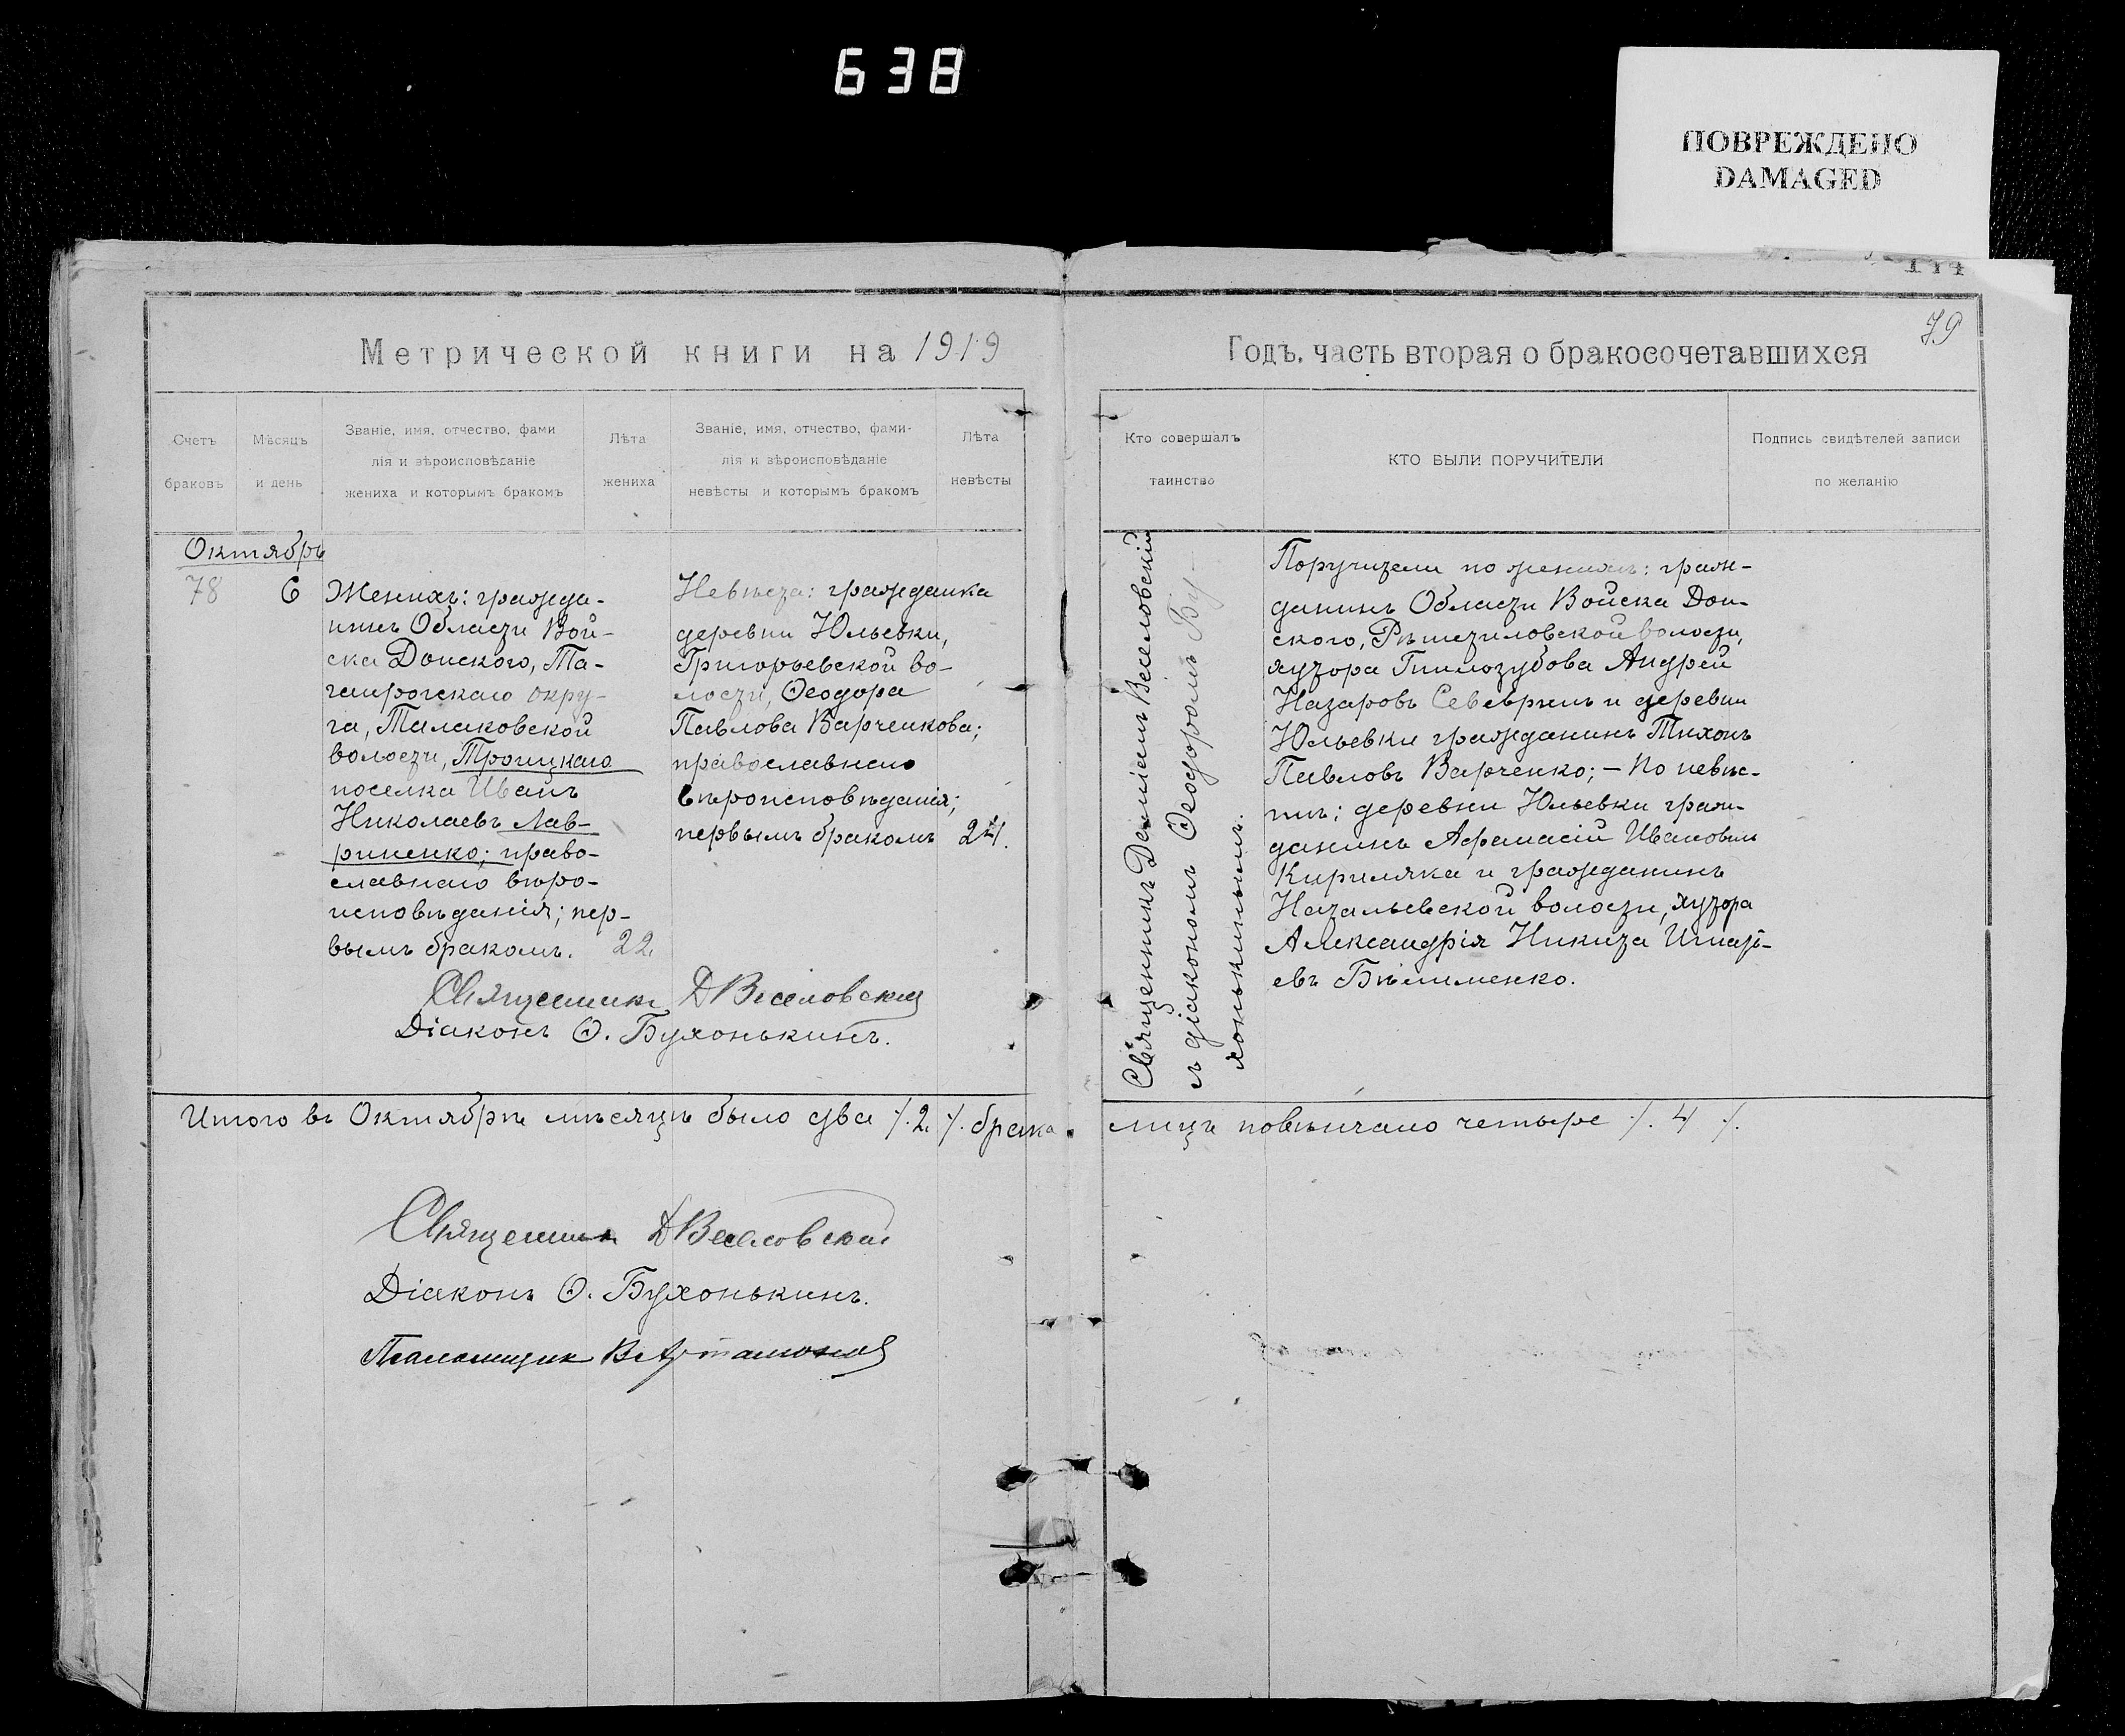 638
ПОВРЕЖДЕНО
DAMAGED
79
Метрической книги на 1919
Годъ, часть вторая о бракосочетавшихся
Счетъ
браковъ
Мѣсяцъ
и день
Званіе, имя, отчество, фами
лія и вѣроисповѣданіе
жениха и которымъ бракомъ
Лѣта
жениха
Званіе, имя, отчество, фами-
лія и вѣроисповѣданіе
невѣсты и которымъ бракомъ
Лѣта
невѣсты
Кто совершалъ
таинство
КТО БЫЛИ ПОРУЧИТЕЛИ
Подпись свидѣтелей записи
по желанію
Октябрь
78
6
Женихъ: гражда-
нинъ Области Вой-
ска Донского, Та-
ганрогскаго окру-
га, Малаковской
волости, Троицкаго
поселка Иванъ
Николаевъ Лав-
риненко; право-
славнаго вѣро-
исповѣданія; пер-
вымъ бракомъ.
22.
Невѣста: гражданка
деревни Юльевки,
Григорьевской во-
лости, Ѳеодора
Павлова Варченкова;
православнаго
вѣроисповѣданія;
первымъ бракомъ
21.
Священникъ ДВеселовскій
Діаконъ Ѳ. Бухонькинъ.
Священникъ Даміанъ Веселовскій
съ діакономъ Ѳеодоромъ Бу-
хонькинымъ.
Поручители по женихѣ: граж-
данинъ Области Войска Дон-
ского, волости,
хутора Гнилозубова Андрей
Назаровъ Северинъ и деревни
Юльевки гражданинъ Тихонъ
Павловъ Варченко; – по невѣс-
тѣ: деревни Юльевки граж-
данинъ Афанасій Ивановъ
Кириляка и гражданинъ
волости, хутора
Александрія Никита Игнать-
евъ Бѣлименко.
Итого въ Октябрѣ мѣсяцѣ было два /. 2. /. брака.
лицъ повѣнчано четыре /. 4 /.
Священникъ ДВеселовскій
Діаконъ Ѳ. Бухонькинъ.
Псаломщик В Артамонов